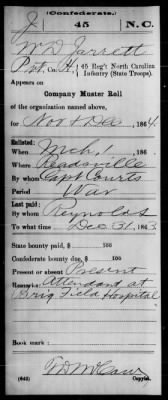 (Confederate.)
J 45 N.C.
W D Jarrett
Pvt, Co. H, 45 Reg't North Carolina
Infantry (State Troops).
Appears on
Company Muster Roll
of the organization named above,
for Nov & Dec, 1864.
Enlisted:
When Mch 1, 186
Where Readsville
By whom Capt Courts
Period War
Last paid:
By whom Reynolds
To what time Dec 31, 1863
State bounty paid, $ 100
Confederate bounty due, $ 100
Present or absent Present
Remarks: Attendant at
Brig Field Hospital
Book mark:
(642) Copyist.